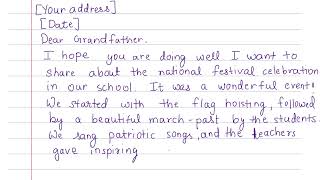 [Your address]
[Date]
Dear Grandfather.
I hope you are doing well I want to
share about the national festival celebration
in our school. It was a wonderful event!
We started with the flag hoisting, followed
by a beautiful march-past by the students.
We sang patriotic songs, and the teachers
gave inspiring